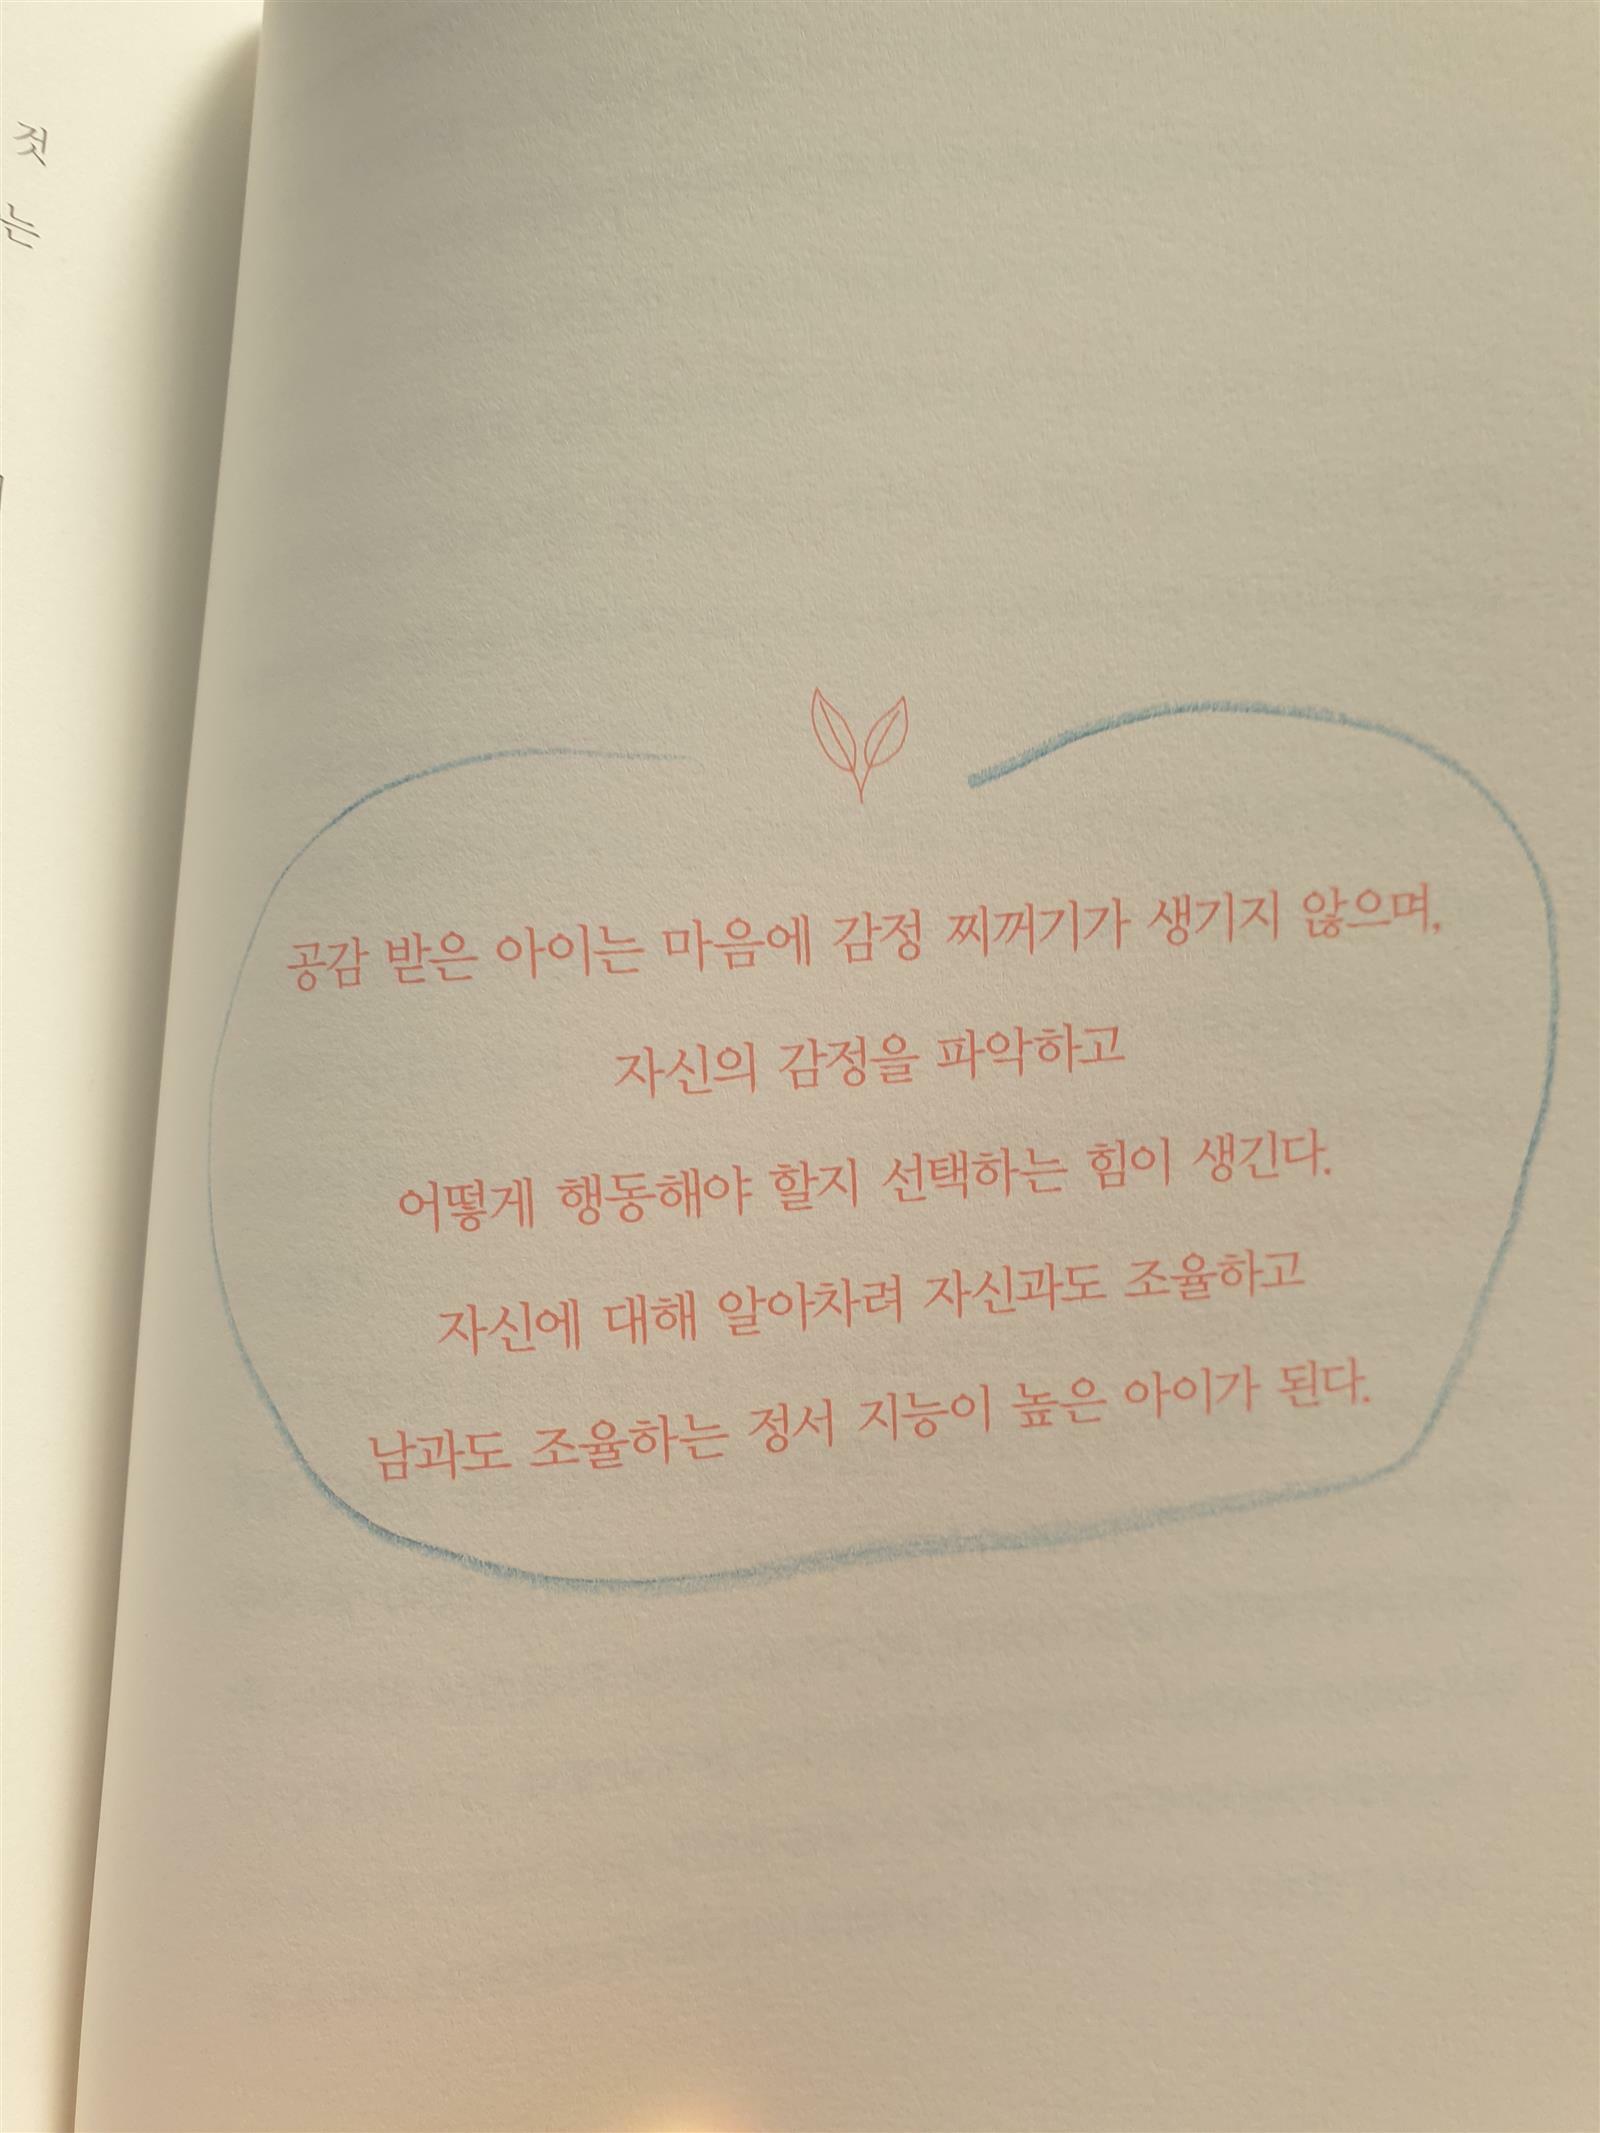 짓
는
공감 받은 아이는 마음에 감정 찌꺼기가 생기지 않으며,
자신의 감정을 파악하고
어떻게 행동해야 할지 선택하는 힘이 생긴다.
자신에 대해 알아차려 자신과도 조율하고
남과도 조율하는 정서 지능이 높은 아이가 된다.